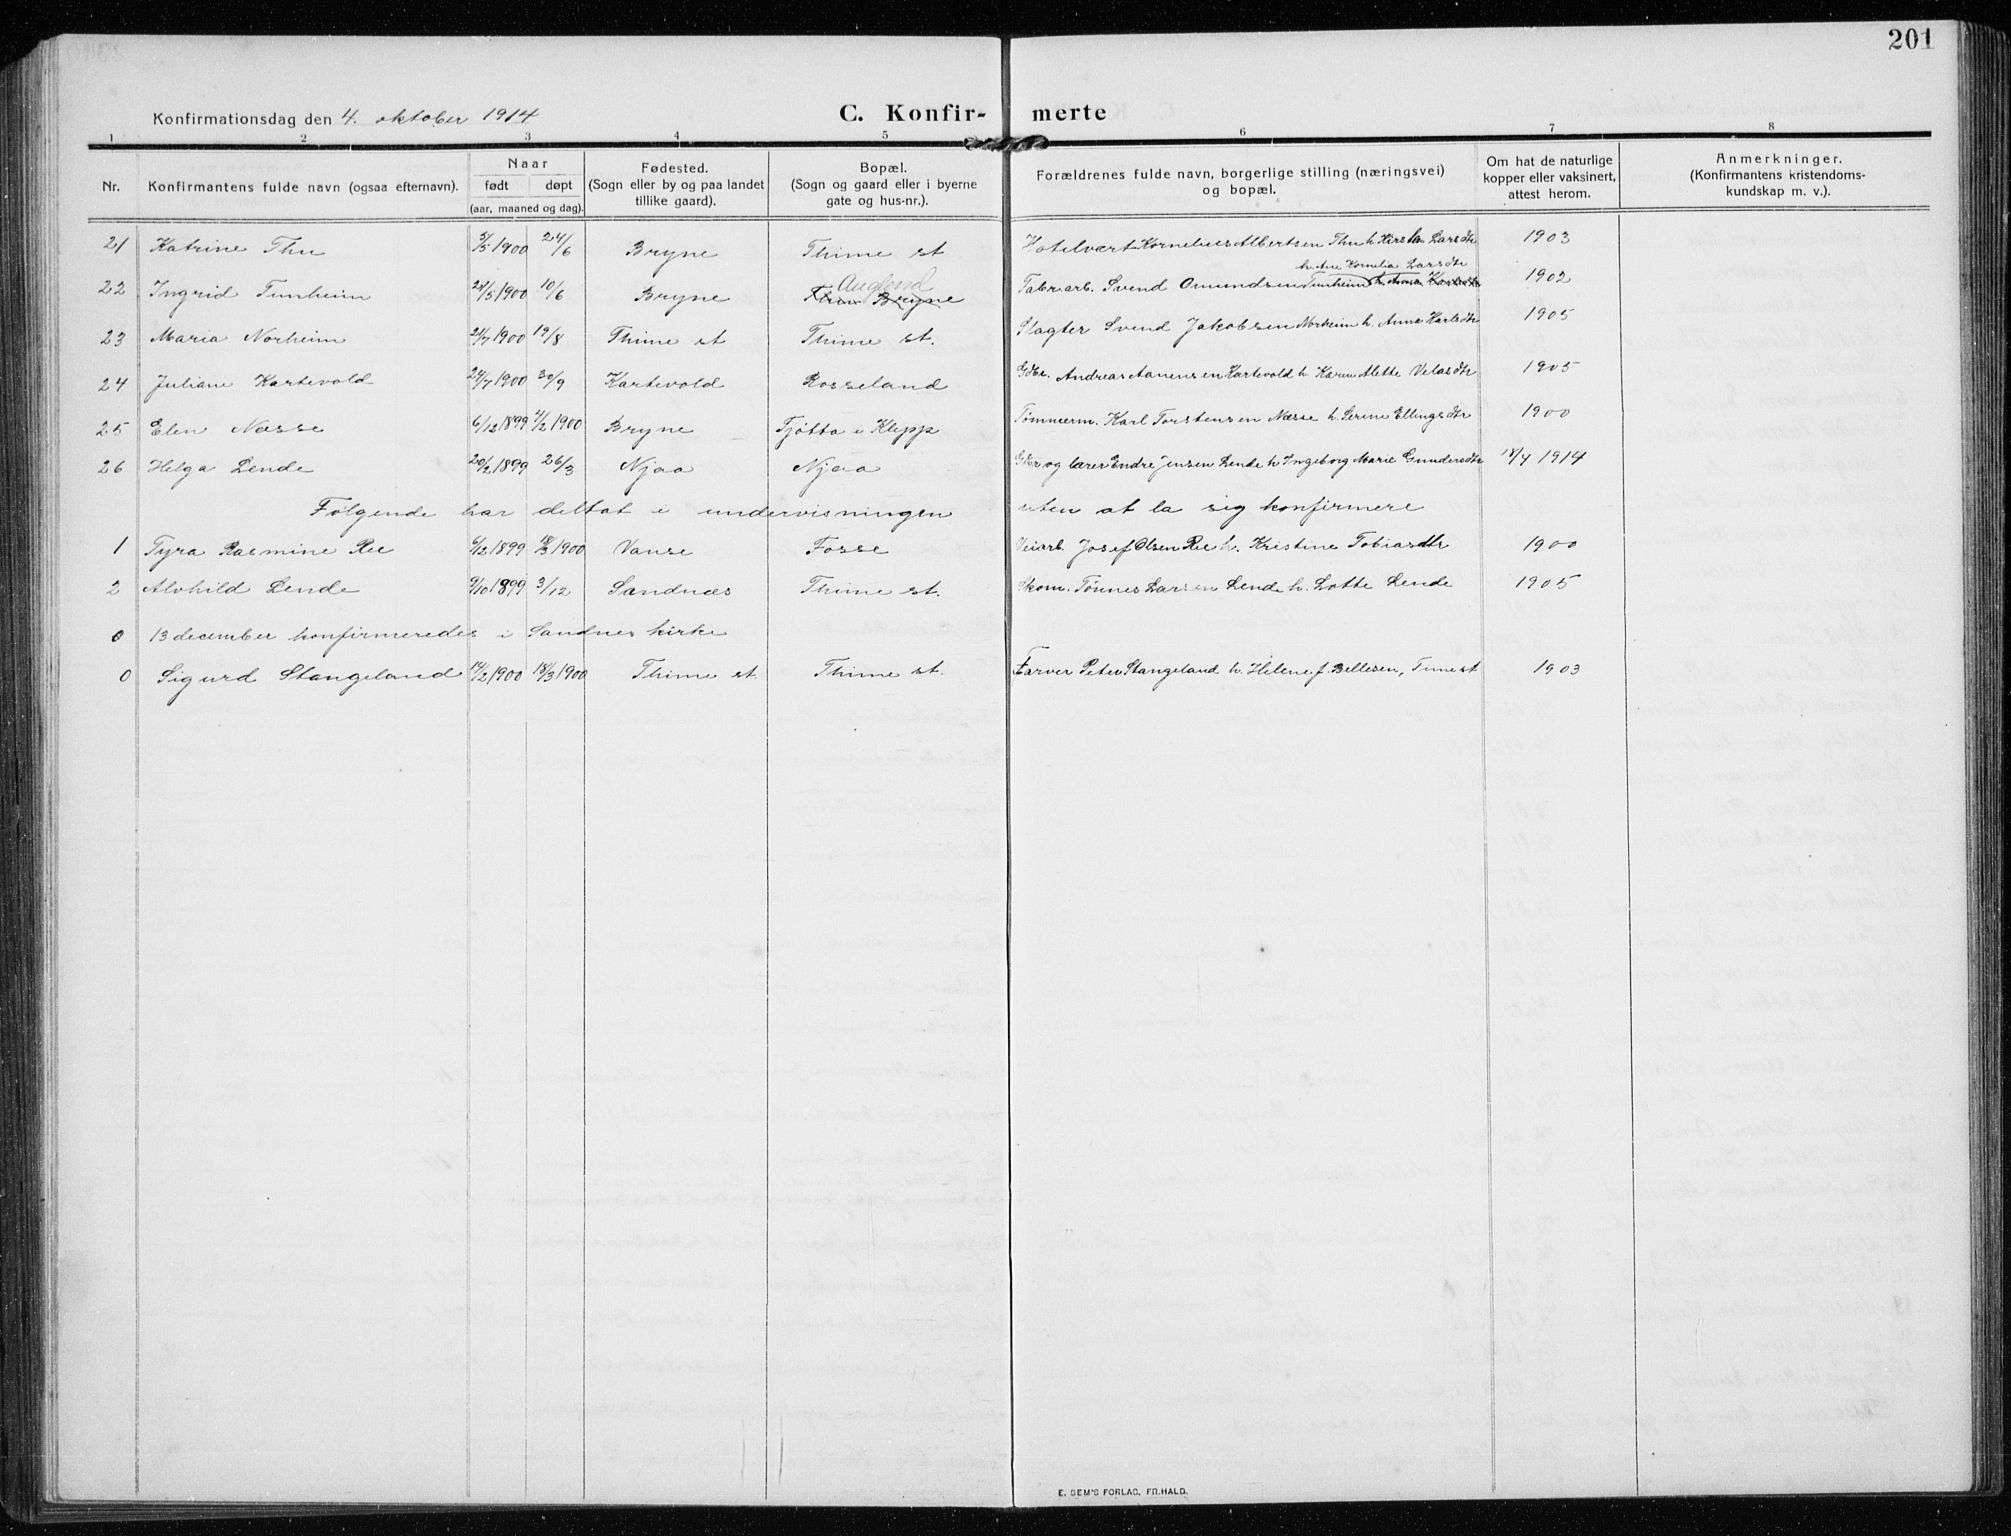 201
Konfirmationsdag den 4. oktober 1914 C. Konfir- merte
1 2 3 4 5 6 7 8
Nr. Konfirmantens fulde navn (ogsaa efternavn). Naar født døpt (aar, maaned og dag). Fødested. (Sogn eller by og paa landet tillike gaard). Bopæl. (Sogn og gaard eller i byerne gate og hus-nr.). Forældrenes fulde navn, borgerlige stilling (næringsvei) og bopæl. Om hat de naturlige kopper eller vaksinert, attest herom. Anmerkninger. (Konfirmantens kristendoms- kundskap m. v.).
21 Katrine Thu 5/5 1900 24/6 Bryne Thime st Hotelvært Kornelius Albertsen Thu h. Larsdtr 1903
h. Ane Kornelia Larsdtr
Auglend
22 Ingrid Tunheim 24/5 1900 10/6 Bryne Bryne Fabr.arb. Svend Omundsen Tunheim h. Anna 1902
23 Maria Norheim 24/7 1900 19/8 Thime st Thime st. Slagter Svend Jakobsen Norheim h. Anna Karlsdtr 1905
24 Juliane Kartevold 24/7 1900 30/9 Kartevold Rosseland Gbr. Andreas Aanensen Kartevold h. Karen Alette Velasdtr 1905
25 Elen Næsse 6/12 1899 4/2 1900 Bryne Tjøtta i Klepp Tømmerm. Karl Torstensen Næsse h. Serine Ellingsdtr 1900
26 Helga Lende 20/2 1899 26/3 Njaa Njaa Gbr og lærer Endre Jensen Lende h Ingeborg Marie Gundersdtr 18/4 1914
Følgende har deltat i undervisningen uten at la sig konfirmere
1 Tyra Rasmine Ree 6/12 1899 1900 Vanse Fosse Veiarb. Josef Olsen Ree h. Kristine Tobiasdtr 1900
2 Alvhild Lende 9/10 1899 3/12 Sandnæs Thime st. Skom. Tønnes Larsen Lende h. Lotte Lende 1905
0 13 december konfirmeredes i Sandnes kirke
0 Sigurd Stangeland 14/2 1900 18/3 1900 Thime st. Thime st. Farver Peter Stangeland h. Helene f. Bellesen, Time st 1903
E. SEM'S FORLAG, FR.HALD.